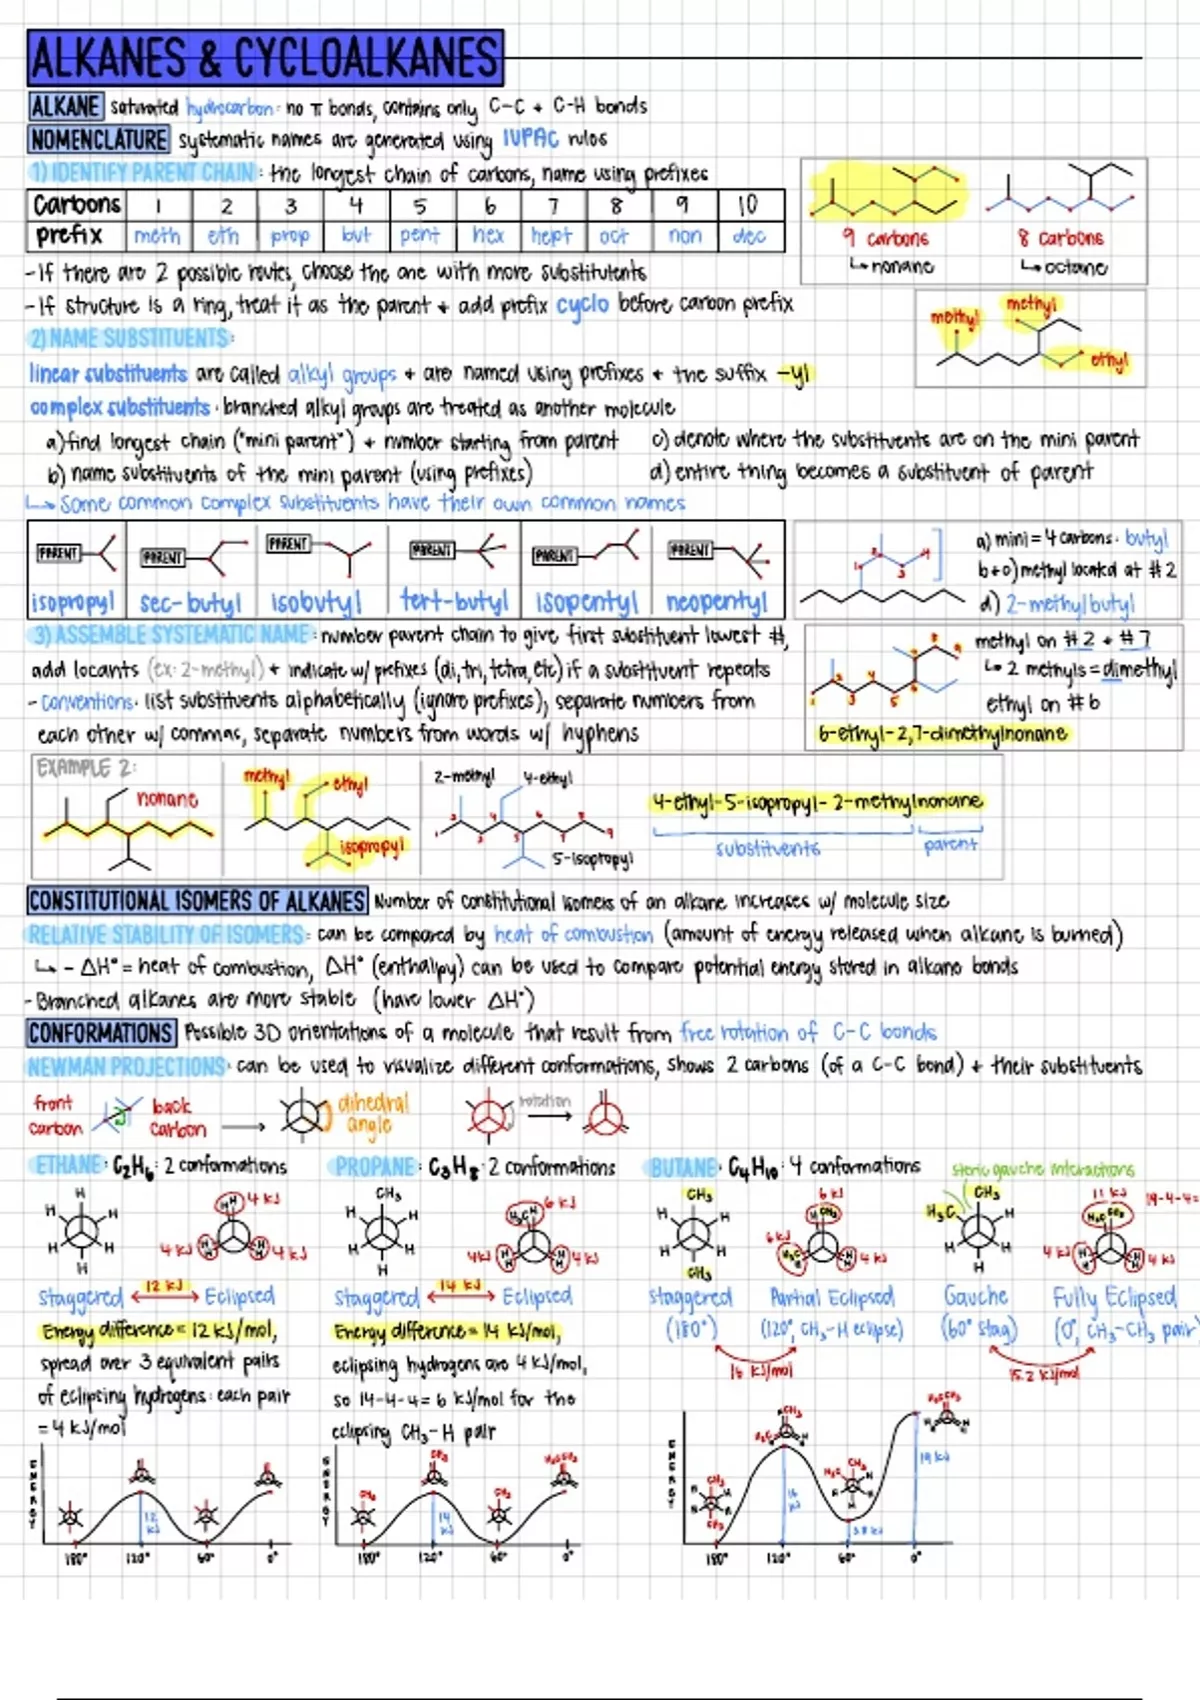 ALKANES & CYCLOALKANES
ALKANE saturated hydrocarbon: no π bonds, contains only C-C + C-H bonds
NOMENCLATURE systematic names are generated using IUPAC rules
1) IDENTIFY PARENT CHAIN: the longest chain of carbons, name using prefixes
Carbons 1 2 3 4 5 6 7 8 9 10
prefix meth eth prop but pent hex hept oct non dec
9 carbons
↳ nonane
8 carbons
↳ octane
-If there are 2 possible routes, choose the one with more substitutents
-If structure is a ring, treat it as the parent + add prefix cyclo before carbon prefix
2) NAME SUBSTITUENTS:
methyl
methyl
ethyl
linear substituents are called alkyl groups + are named using prefixes + the suffix -yl
complex substituents: branched alkyl groups are treated as another molecule
a) find longest chain ("mini parent") + number starting from parent
c) denote where the substituents are on the mini parent
b) name substituents of the mini parent (using prefixes)
d) entire thing becomes a substituent of parent
↳ Some common complex substituents have their own common names
PARENT PARENT PARENT PARENT PARENT PARENT
isopropyl sec-butyl isobutyl tert-butyl isopentyl neopentyl
1 2 3 4
a) mini = 4 carbons: butyl
b+c) methyl located at #2
d) 2-methylbutyl
3) ASSEMBLE SYSTEMATIC NAME: number parent chain to give first substituent lowest #,
add locants (ex: 2-methyl) + indicate w/ prefixes (di, tri, tetra, etc) if a substituent repeats
- conventions: list substituents alphabetically (ignore prefixes), separate numbers from
each other w/ commas, separate numbers from words w/ hyphens
1 2 3 4 5 6 7 8 9
methyl on #2 + #7
↳ 2 methyls = dimethyl
ethyl on #6
6-ethyl-2,7-dimethylnonane
EXAMPLE 2:
nonane
methyl
ethyl
isopropyl
2-methyl 4-ethyl
5-isopropyl
4-ethyl-5-isopropyl-2-methylnonane
substituents parent
CONSTITUTIONAL ISOMERS OF ALKANES Number of constitutional isomers of an alkane increases w/ molecule size
RELATIVE STABILITY OF ISOMERS: can be compared by heat of combustion (amount of energy released when alkane is burned)
↳ -ΔH° = heat of combustion, ΔH° (enthalpy) can be used to compare potential energy stored in alkane bonds
-Branched alkanes are more stable (have lower ΔH°)
CONFORMATIONS Possible 3D orientations of a molecule that result from free rotation of C-C bonds
NEWMAN PROJECTIONS: can be used to visualize different conformations, shows 2 carbons (of a C-C bond) + their substituents
front carbon
back carbon
dihedral angle
rotation
ETHANE: C₂H₆: 2 conformations
PROPANE: C₃H₈: 2 conformations
BUTANE: C₄H₁₀: 4 conformations
steric gauche interactions
H H H H H H
4 kJ 4 kJ 4 kJ
CH₃ H H H H H
6 kJ 4 kJ 4 kJ
CH₃ H H H H CH₃
6 kJ 6 kJ 4 kJ
CH₃ H₃C H H H H
11 kJ 4 kJ 4 kJ
19-4-4=
Staggered 12 kJ Eclipsed
Staggered 14 kJ Eclipsed
staggered (180°)
Partial Eclipsed (120°, CH₃-H eclipse)
Gauche (60° stag)
Fully Eclipsed (0°, CH₃-CH₃ pair)
16 kJ/mol
15.2 kJ/mol
Energy difference = 12 kJ/mol,
spread over 3 equivalent pairs
of eclipsing hydrogens: each pair
= 4 kJ/mol
Energy difference = 14 kJ/mol,
eclipsing hydrogens are 4 kJ/mol,
so 14-4-4= 6 kJ/mol for the
eclipsing CH₃-H pair
ENERGY
12 kJ
180° 120° 60° 0°
ENERGY
14 kJ
180° 120° 60° 0°
ENERGY
16 kJ
3.8 kJ
19 kJ
180° 120° 60° 0°